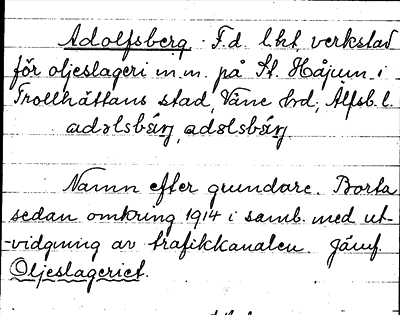 Adolfsberg. F.d. lht, verkstad
för oljeslageri m.m. på St. Håjum i
Trollhättans stad, Väne hd, Älfsb. l.
adəlsbárj, adəlsbárj
Namn efter grundare. Borta
sedan omkring 1914 i samb. med ut-
-vidgning av trafikkanalen. Jämf.
Oljeslageriet.